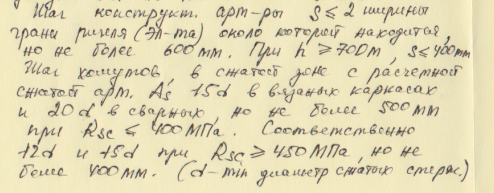 Шаг конструкт. арм-ры S ≤ 2 ширины
грани ригеля (эл-та) около которой находится,
но не более 600 мм. При h ≥ 700м, S ≤ 400мм
Шаг хомутов, в сжатой зоне с расчетной
сжатой арм. As 15d в вязаных каркасах
и 20d в сварных, но не более 500 мм
при Rsc ≤ 400 МПа. Соответственно
12d и 15d при Rsc ≥ 450 МПа, но не
более 400 мм. (d-min диаметр сжатых стерж.)